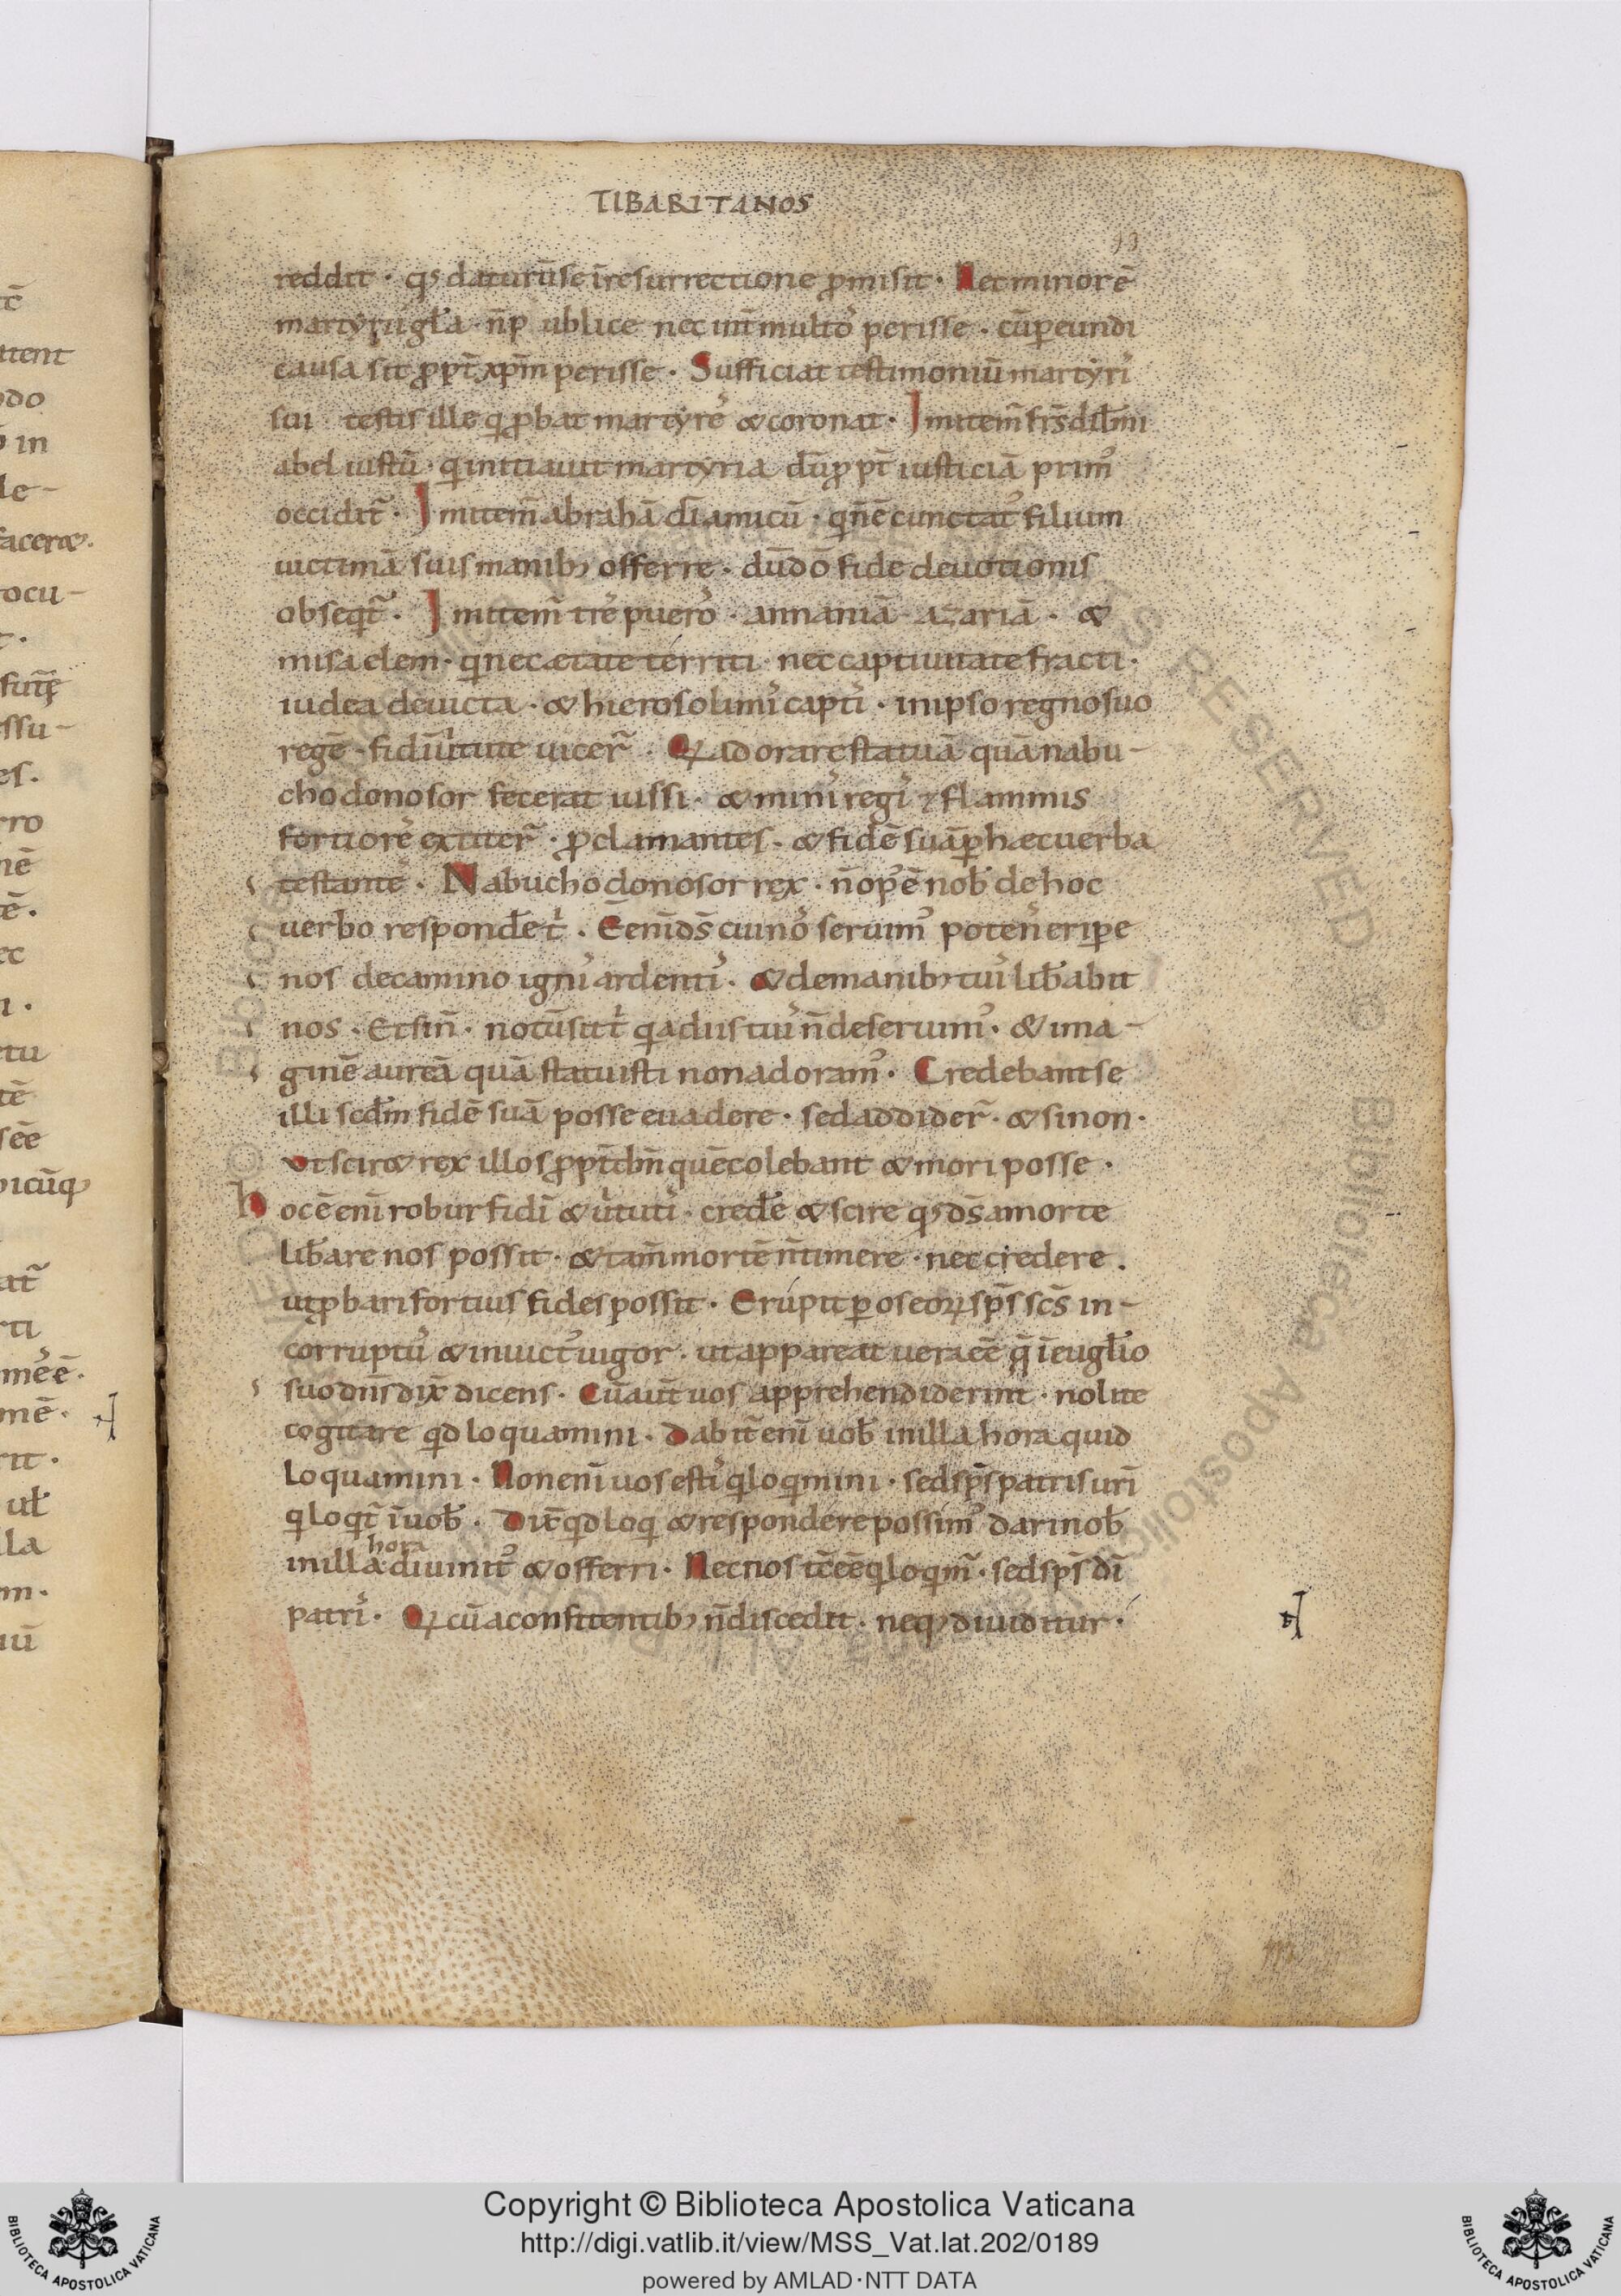 TIBARITANOS
reddit · qd daturū se ī resurrectione ꝓmisit · Nec minor ē
martyrii gła · n̄ publice nec int̄ multo᾽ perisse · cū pereundi
causa sit ꝓpt̄ xp̄m perisse · Sufficiat testimoniū martyri᾽
sui testis ille q ꝓbat martyre᾽ & coronat · Imitem̄ frs̄ dił̄mi
abel iustū · q initiauit martyria dū ꝓpt̄ iusticiā prim᾽
occidit᷑ · Imitem̄ abrahā dī amicū · q n̄ ē cunctat᾽ filium
uictimā suis manib; offerre · dū dō fide deuotionis
obseqt᷑ · Imitem̄ tre᾽ puero᾽ · annaniā · azariā · &
misaelem · q nec ætate territi · nec captiuitate fracti ·
iudea deuicta · & hierosolimi᾽ capti᾽ · in ipso regno suo
regē · fidī u̍tute uicer̄ · Q adorare statuā quā nabu-
chodonosor fecerat iussi · & mini᾽ regi᾽ & flammis
fortiore᾽ extiter̄ · ꝓclamantes · & fidē suā ꝑ hæc uerba
testante᾽ · Nabuchodonosor rex · n̄ op᾽ ē nob̄ de hoc
uerbo respondēt᷑ · Ē enī ds̄ cui no᾽ seruim᾽ poten᾽ eripe
nos de camino igni᾽ ardenti᾽ · & de manib; tui᾽ lib̄abit
nos · Et si n̄ · notū sit t᷑ q a dīis tui᾽ n̄ deseruim᾽ · & ima-
ginē aureā quā statuisti non adoram᾽ · Credebant se
illi scd̄m fidē suā posse euadere · sed addider̄ · & si non ·
ut scir& rex illos ꝓpt̄ dn̄m quē colebant & mori posse ·
hoc ē enī robur fidī & u̍tuti᾽ · crede᾽ & scire qd ds̄ a morte
lib̄are nos possit · & tam̄ mortē n̄ timere · nec credere ·
ut ꝓbari fortius fides possit · Erúpit ꝑ os eoꝝ sp̄s sc̄s in-
corruptū & inuict᾽ uigor · ut appareat uera eē q̄ ī eugłio
suo dn̄s dix̄ dicens · Cū aut̄ uos apprehenderint · nolite
cogitare qd loquamini · Dabit᷑ enī uob̄ in illa hora quid
loquamini · Non enī uos esti᾽ q loqmini · sed sp̄s patris ur̄i
q loqt᷑ ī uob̄ · Dix̄ qd loqi & respondere possim᾽ dari nob̄
in illa hora diuinit᾽ & offerri · Nec nos tc̄ eē q loqm᷑ · sed sp̄s dī
patri᾽ · Q cū a confitentib; n̄ discedit · neq; diuiditur ·
Copyright © Biblioteca Apostolica Vaticana
http://digi.vatlib.it/view/MSS_Vat.lat.202/0189
powered by AMLAD·NTT DATA